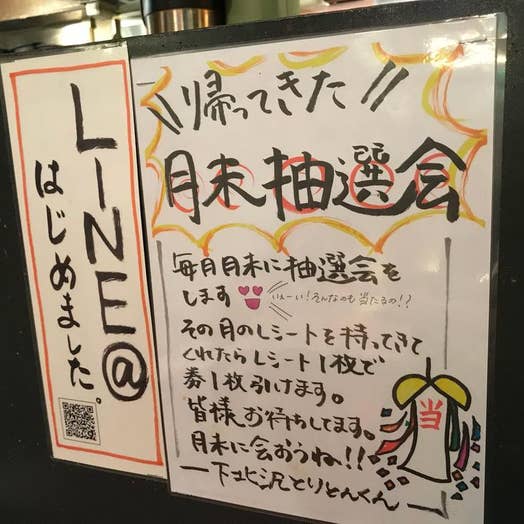 LINE@
はじめました。
\\帰ってきた//
月末抽選会
毎月月末に抽選会を
します いぇーい!そんなのも当たるの!?
その月のレシートを持ってきて
くれたらレシート1枚で
券1枚引けます。
皆様お待ちしてます。
月末に会おうね!!
ー下北沢とりとんくんー
当